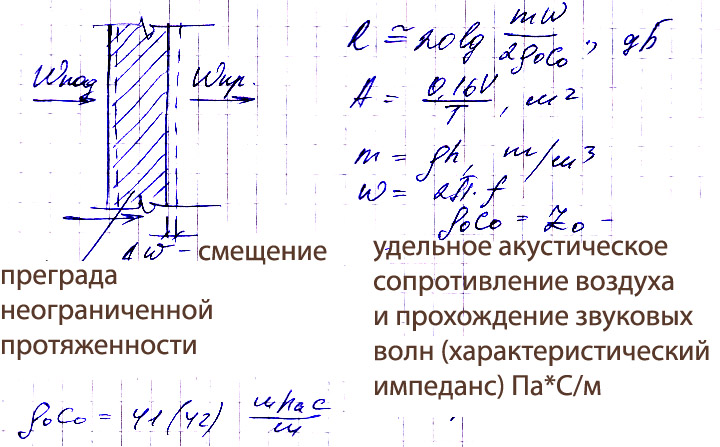 R ≅ 20lg mω/2ρ₀c₀, дБ
Wпад Wпр.
A = 0,16V/T, м²
m = ρh, m/м³
ω = 2π·f
ρ₀c₀ = Z₀ –
1 w – смещение
преграда
неограниченной
протяженности
удельное акустическое
сопротивление воздуха
и прохождение звуковых
волн (характеристический
импеданс) Па*С/м
ρ₀c₀ = 41 (42)